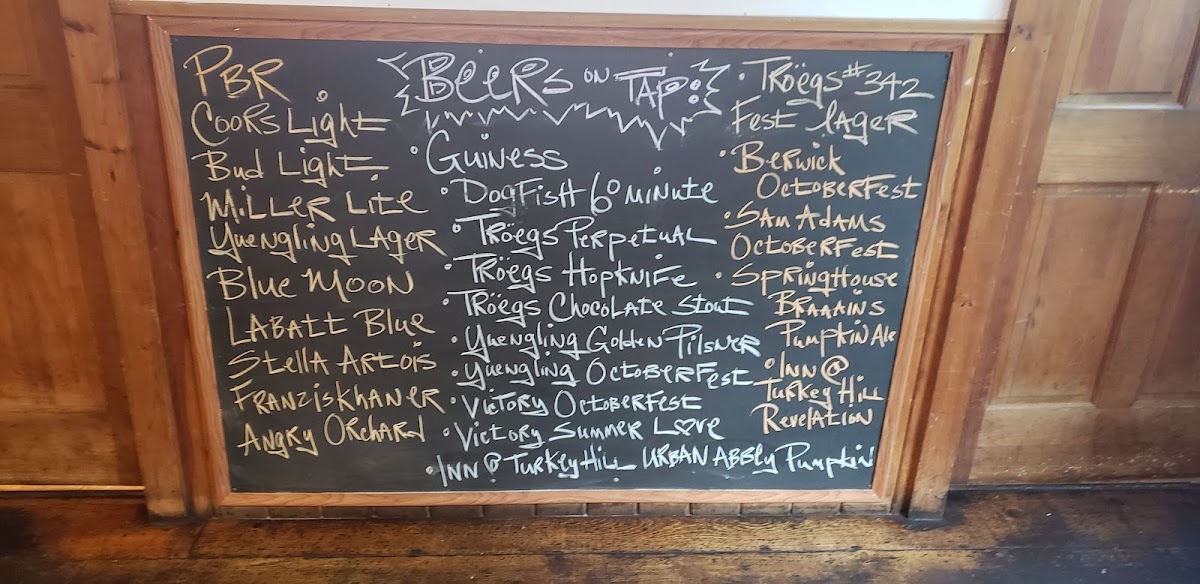 BEERS ON TAP!
PBR
Coors Light
Bud Light
Miller Lite
Yuengling Lager
Blue Moon
Labatt Blue
Stella Artois
Franziskhaner
Angry Orchard
• Guiness
• Dogfish 60 minute
• Tröegs Perpetual
• Tröegs Hopknife
• Tröegs Chocolate Stout
• Yuengling Golden Pilsner
• Yuengling Octoberfest
• Victory Octoberfest
• Victory Summer Love
• Inn @ Turkey Hill Urban Abbey Pumpkin
• Tröegs #342
Fest Lager
• Berwick
Octoberfest
• Sam Adams
Octoberfest
• Springhouse
Braaains
Pumpkin Ale
• Inn @
Turkey Hill
Revelation